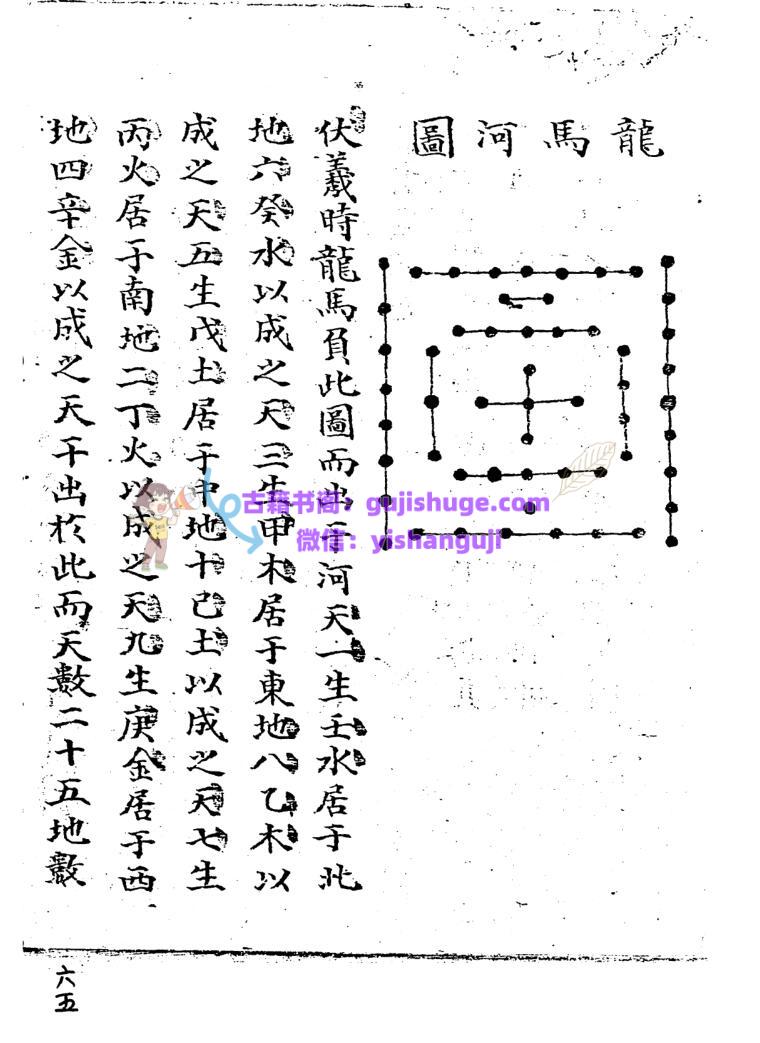 龍馬河圖
伏羲時龍馬負此圖而出于河天一生壬水居于北
地六癸水以成之天三生甲木居于東地八乙木以
成之天五生戊土居于中地十己土以成之天七生
丙火居于南地二丁火以成之天九生庚金居于西
地四辛金以成之天干出於此而天數二十五地數
古籍书阁：gujishuge.com
微信：yishanguji
六五